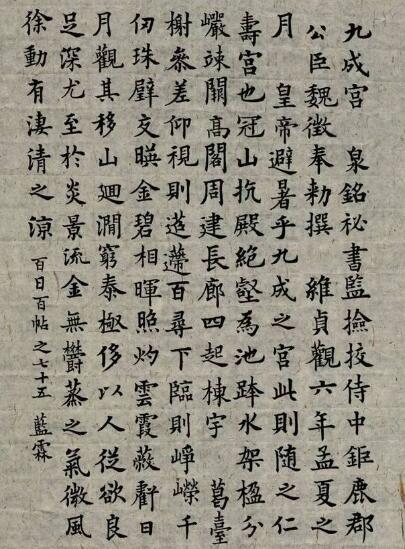 九成宮 泉銘祕書監撿挍侍中鉅鹿郡
公臣魏徵奉勅撰 維貞觀六年孟夏之
月 皇帝避暑乎九成之宮此則随之仁
壽宮也冠山抗殿絶壑為池跨水架楹分
巖竦闕高閣周建長廊四起棟宇 葛臺
榭參差仰視則迢遰百尋下臨則崢嶸千
仞珠璧交暎金碧相暉照灼雲霞蔽虧日
月觀其移山迴澗窮泰極侈以人從欲良
足深尤至於炎景流金無欝蒸之氣微風
徐動有淒清之涼 百日百帖之七十五 藍霖